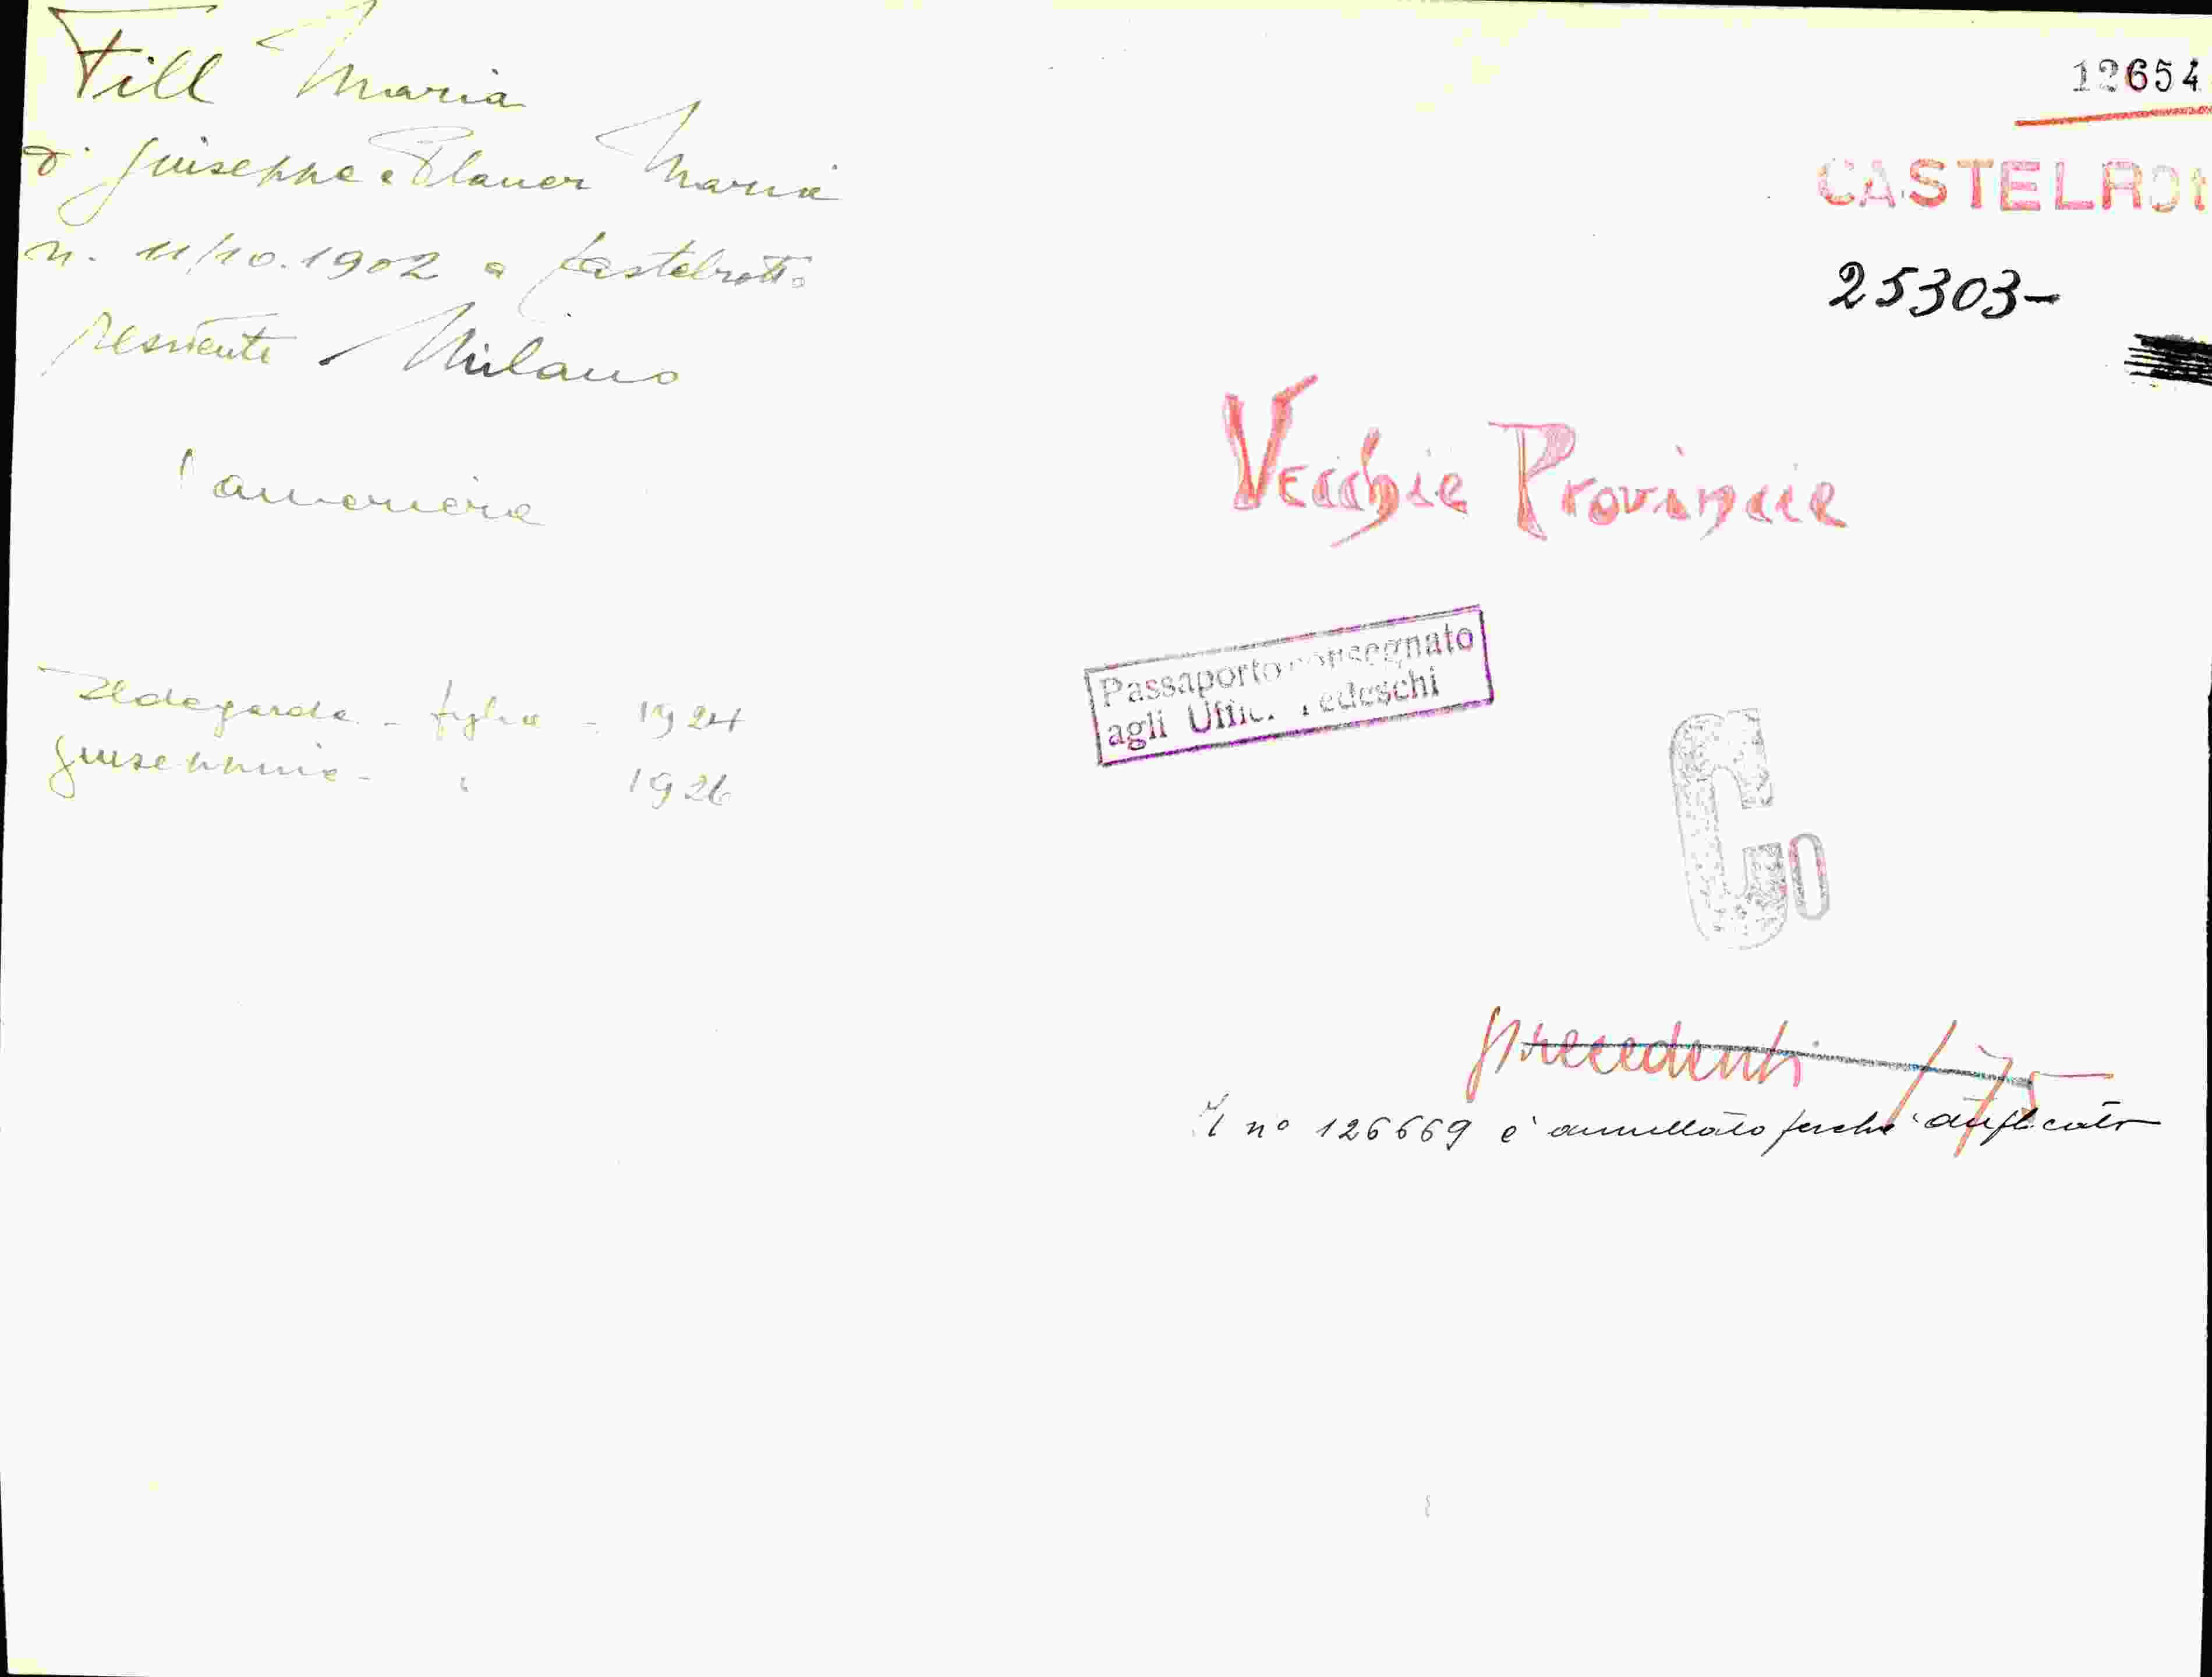 Fill Maria
di Giuseppe e Planer Maria
n. 11/10.1902 a Castelrotto
residente a Milano
Cameriera
Ildegarda - figlia - 1924
Giuseppina - " 1926
12654
CASTELROT
25303-
Vecchie Provincie
Passaporto consegnato
agli Uffic. Tedeschi
Co
precedenti
Il n° 126669 è annullato perché duplicato